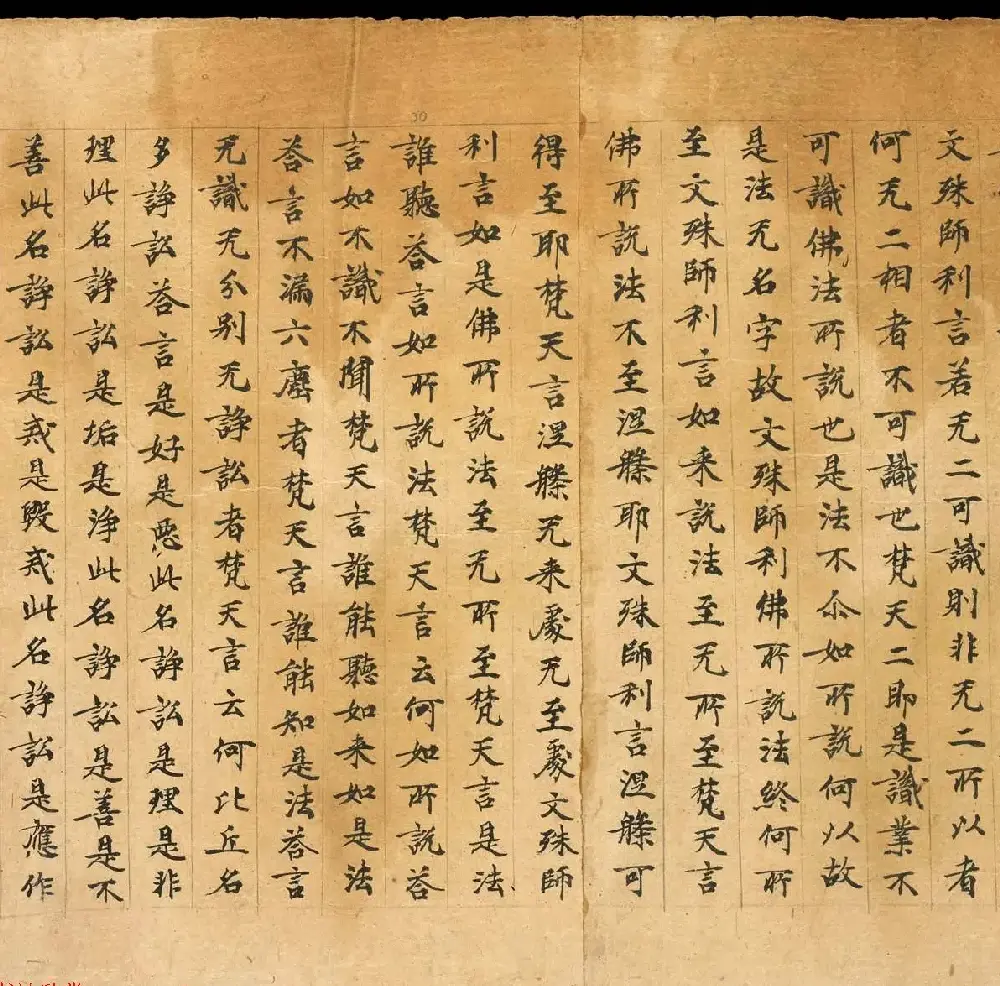 文殊師利言若无二可識則非无二所以者
何无二相者不可識也梵天二即是識業不
可識佛法所說也是法不尒如所說何以故
是法无名字故文殊師利佛所說法終何所
至文殊師利言如来說法至无所至梵天言
佛所說法不至涅槃耶文殊師利言涅槃可
得至耶梵天言涅槃无来處无至處文殊師
利言如是佛所說法至无所至梵天言是法
誰聽荅言如所說法梵天言云何如所說荅
言如不識不聞梵天言誰能聽如来如是法
荅言不漏六塵者梵天言誰能知是法荅言
无識无分别无諍訟者梵天言云何比丘名
多諍訟荅言是好是惡此名諍訟是理是非
理此名諍訟是垢是淨此名諍訟是善是不
善此名諍訟是戒是毀戒此名諍訟是應作
30